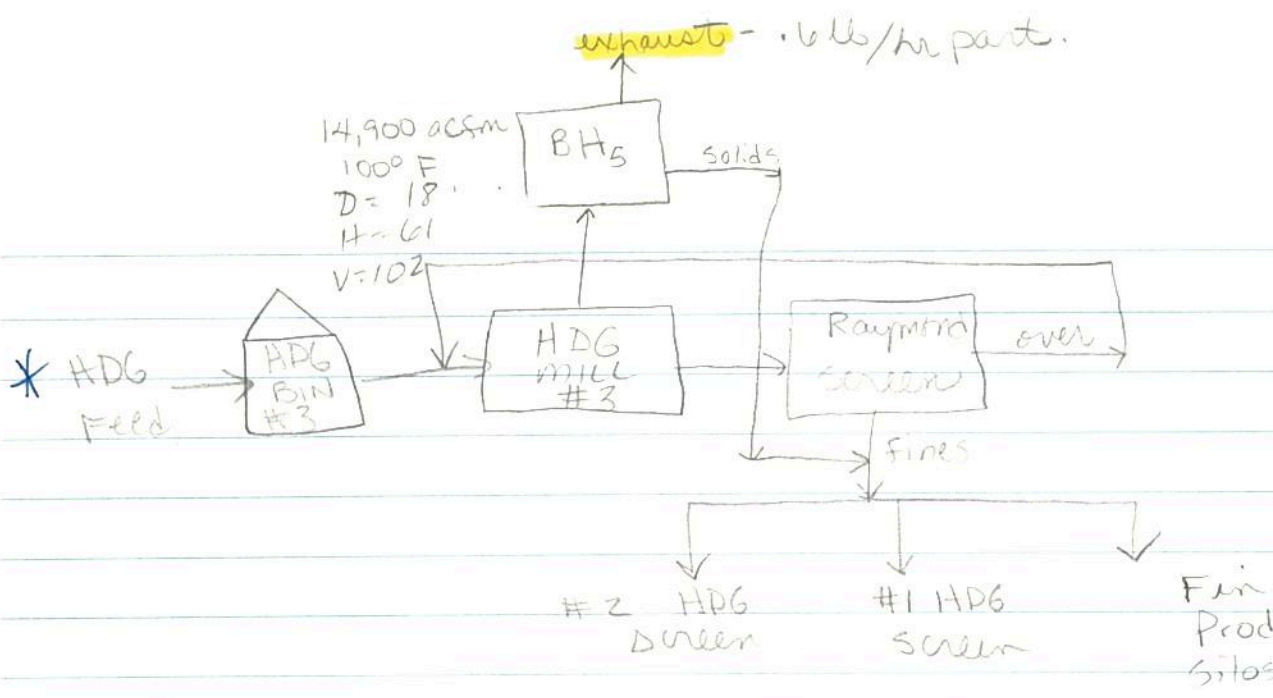 exhaust - .6 lb/hr part.
14,900 acfm
100° F
D = 18
H - 61
V = 102
BH5
solids
* HDG
Feed
HDG
BIN
#3
HDG
MILL
#3
Raymond
screen
over
fines
#2 HDG
screen
#1 HDG
screen
Fin
Prod
Silos